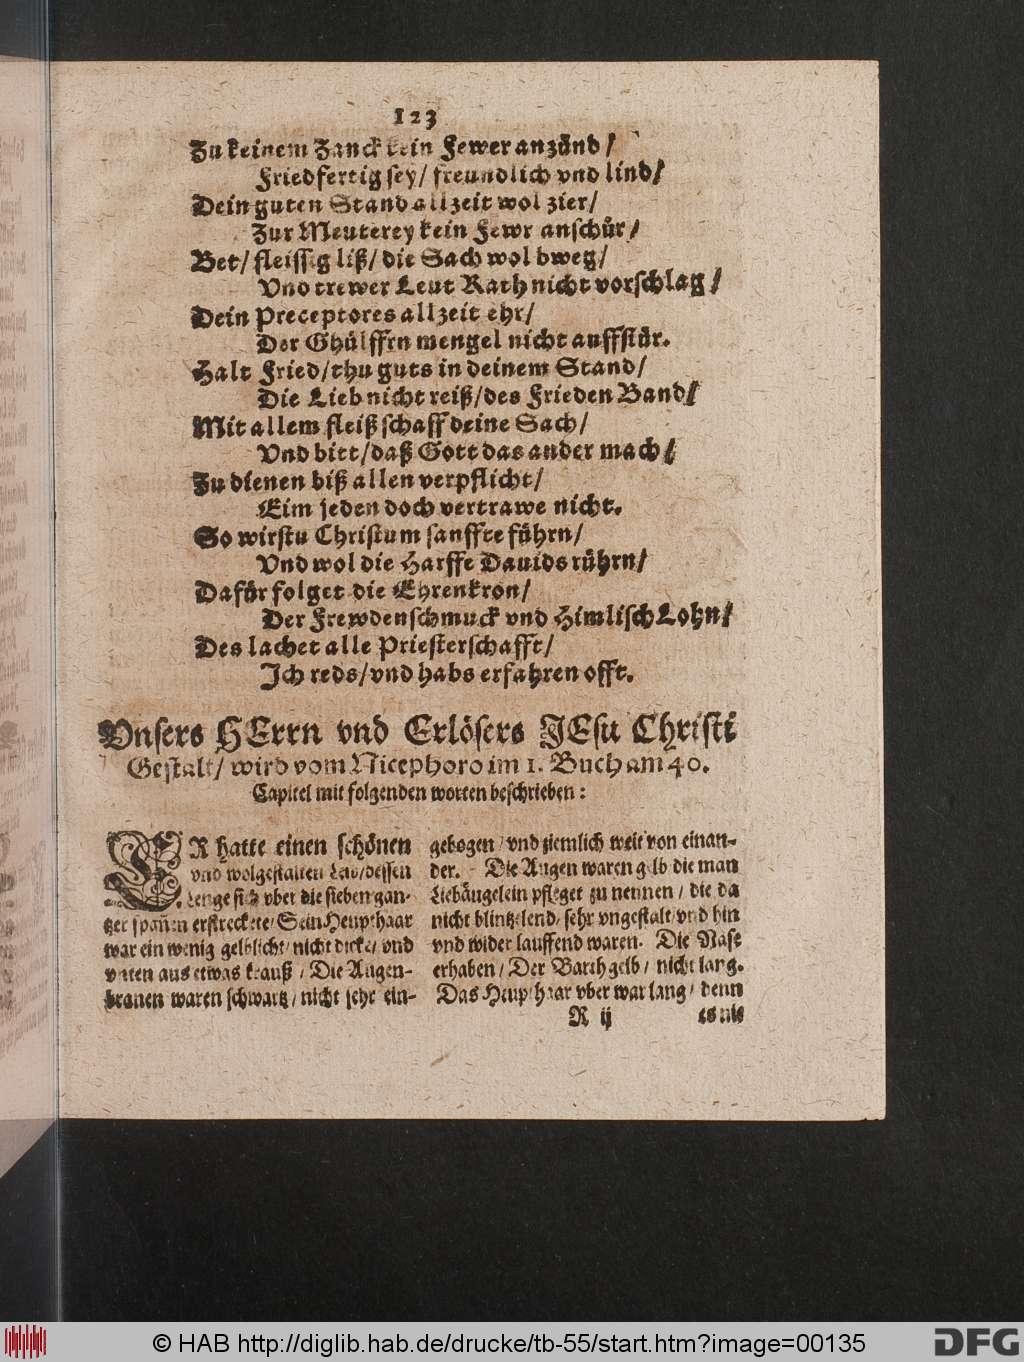 123
Zu keinem Zanck kein Fewer anzünd/
Friedfertig sey/ freundlich vnd lind/
Dein guten Stand allzeit wol zier/
Zur Meuterey kein Fewr anschür/
Bet/ fleissig liß/ die Sach wol bweg/
Vnd trewer Leut Rath nicht vorschlag/
Dein Preceptores allzeit ehr/
Der Ghülffen mengel nicht auffstür.
Halt Fried/ thu guts in deinem Stand/
Die Lieb nicht reiß/ des Frieden Band/
Mit allem fleiß schaff deine Sach/
Vnd bitt/ daß Gott das ander mach/
Zu dienen biß allen verpflicht/
Eim jeden doch vertrawe nicht.
So wirstu Christum sanffte führn/
Vnd wol die Harffe Dauids rührn/
Dafür folget die Ehrenkron/
Der Frewdenschmuck vnd Himlisch Lohn/
Des lachet alle Priesterschafft/
Ich reds/ vnd habs erfahren offt.
Vnsers HErrn vnd Erlösers JEsu Christi
Gestalt/ wird vom Nicephoro im 1. Buch am 40.
Capitel mit folgenden worten beschrieben:
ER hatte einen schönen
vnd wolgestalten Leib/ dessen
Lenge sich vber die sieben gan-
tzer spañen erstreckete/ Sein Heupthaar
war ein wenig gelblicht/ nicht dicke/ vnd
vnten aus etwas krauß/ Die Augen-
brauen waren schwartz/ nicht sehr ein-
gebogen/ vnd ziemlich weit von einan-
der. Die Augen waren gelb die man
Liebäugelein pfleget zu nennen/ die da
nicht blintzelend/ sehr vngestalt/ vnd hin
vnd wider lauffend waren. Die Nase
erhaben/ Der Barth gelb/ nicht lang.
Das Heupthaar vber war lang/ denn
R ij
es nie
© HAB http://diglib.hab.de/drucke/tb-55/start.htm?image=00135
DFG